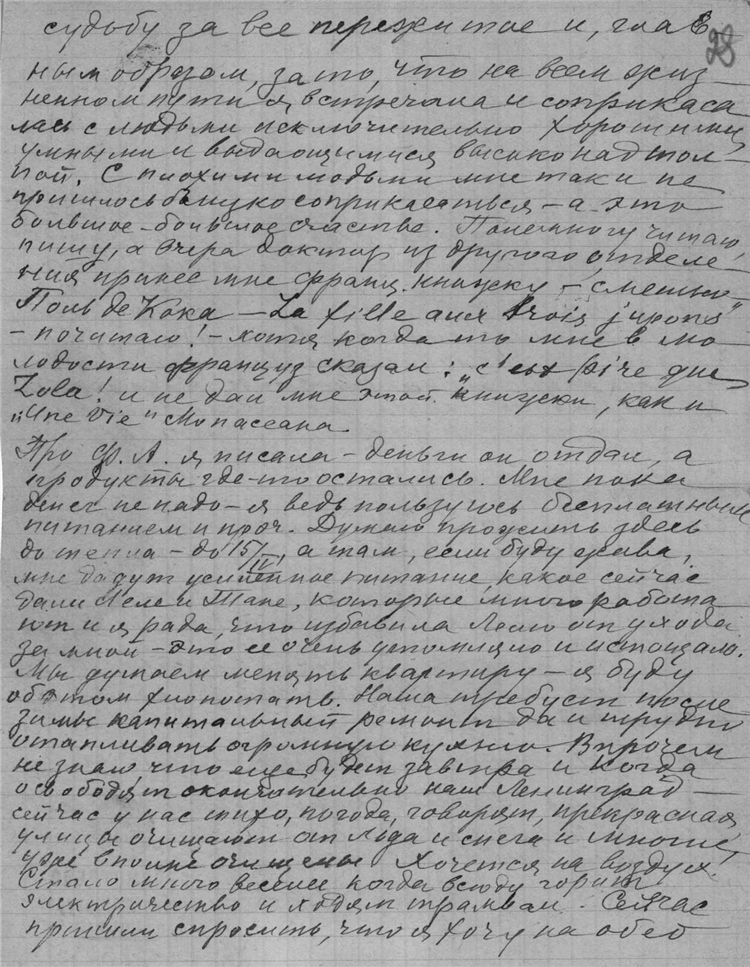 28
судьбу за все пережитое и, глав
ным образом, за то, что на всем жиз
ненном пути я встречала и соприкаса
лась с людьми исключительно хорошими,
умными и выдающимися высоко над тол-
пой. С плохими людьми мне так и не
пришлось близко соприкасаться – а это
большое – большое счастье. Понемногу читаю,
пишу, а вчера доктор из другого отделе-
ния принес мне франц. книжку – смешно
Поль де Кока – La fille aux trois jupons"
– почитаю! – хотя когда то мне в мо
лодости француз сказал: „c'est pire que
Zola! и не дал мне этой книжки, как и
"Une Vie" Мопассана.
Про Ф. А. я писала – деньги он отдал, а
продукты где-то остались. Мне пока
денег не надо – я ведь пользуюсь бесплатным
питанием и проч. Думаю прожить здесь
до тепла – до 15/IV, а там, если буду жива,
мне дадут усиленное питание, какое сейчас
дали Леле и Тане, которые много работа
ют и я рада, что избавила Лелю от ухода
за мной – это ее очень утомляло и истощало.
Мы думаем менять квартиру – я буду
об этом хлопотать. Наша требует после
зимы капитальный ремонт да и трудно
отапливать огромную кухню. Впрочем
не знаю, что еще будет завтра и когда
освободят окончательно наш Ленинград –
сейчас у нас тихо, погода, говорят, прекрасная
улицы очищают от льда и снега и многие
уже вполне очищены. Хочется на воздух!
Стало много веселее когда всюду горит
электричество и ходят трамваи. Сейчас
пришли спросить, что я хочу на обед